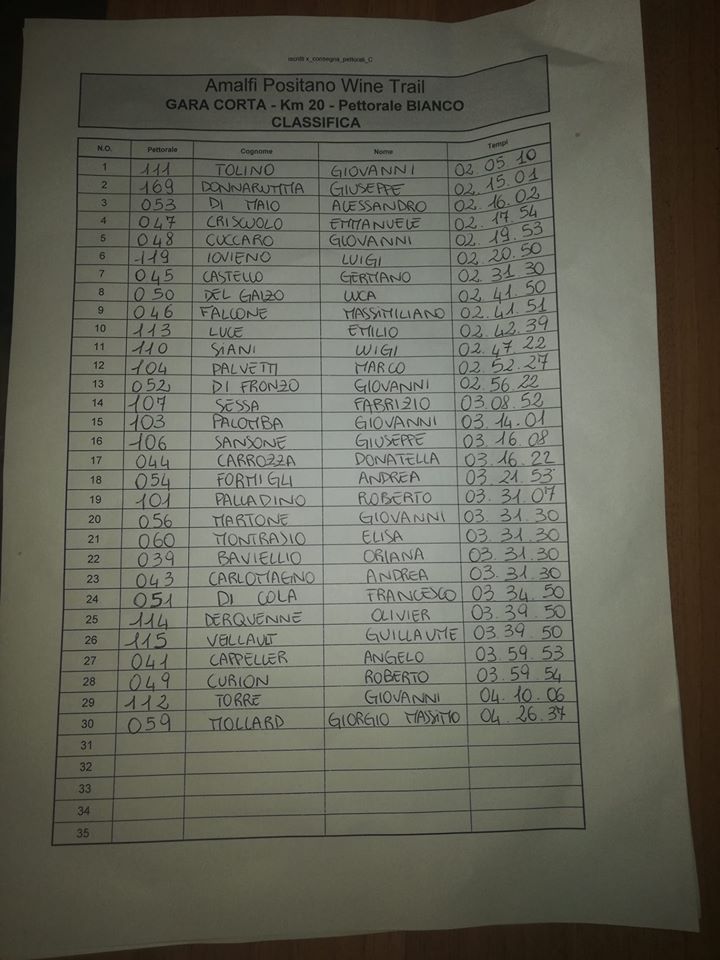 iscritti x_consegna_pettorali_C
Amalfi Positano Wine Trail
GARA CORTA - Km 20 - Pettorale BIANCO
CLASSIFICA
N.O. Pettorale Cognome Nome Tempi
1 111 TOLINO GIOVANNI 02.05.10
2 169 DONNARUMMA GIUSEPPE 02.15.01
3 053 DI MAIO ALESSANDRO 02.16.02
4 047 CRISCUOLO EMMANUELE 02.17.54
5 048 CUCCARO GIOVANNI 02.19.53
6 119 IOVIENO LUIGI 02.20.50
7 045 CASTELLO GERMANO 02.31.30
8 050 DEL GAIZO LUCA 02.41.50
9 046 FALCONE MASSIMILIANO 02.41.51
10 113 LUCE EMILIO 02.42.39
11 110 SIANI LUIGI 02.47.22
12 104 PALVETTI MARCO 02.52.27
13 052 DI FRONZO GIOVANNI 02.56.22
14 107 SESSA FABRIZIO 03.08.52
15 103 PALOMBA GIOVANNI 03.14.01
16 106 SANSONE GIUSEPPE 03.16.08
17 044 CARROZZA DONATELLA 03.16.22
18 054 FORMIGLI ANDREA 03.21.53
19 101 PALLADINO ROBERTO 03.31.07
20 056 MARTONE GIOVANNI 03.31.30
21 060 MONTRASIO ELISA 03.31.30
22 039 BAVIELLIO ORIANA 03.31.30
23 043 CARLOMAGNO ANDREA 03.31.30
24 051 DI COLA FRANCESCO 03.34.50
25 114 DERQUENNE OLIVIER 03.39.50
26 115 VEILLAULT GUILLAUME 03.39.50
27 041 CAPPELLER ANGELO 03.59.53
28 049 CURION ROBERTO 03.59.54
29 112 TORRE GIOVANNI 04.10.06
30 059 MOLLARD GIORGIO MASSIMO 04.26.37
31
32
33
34
35